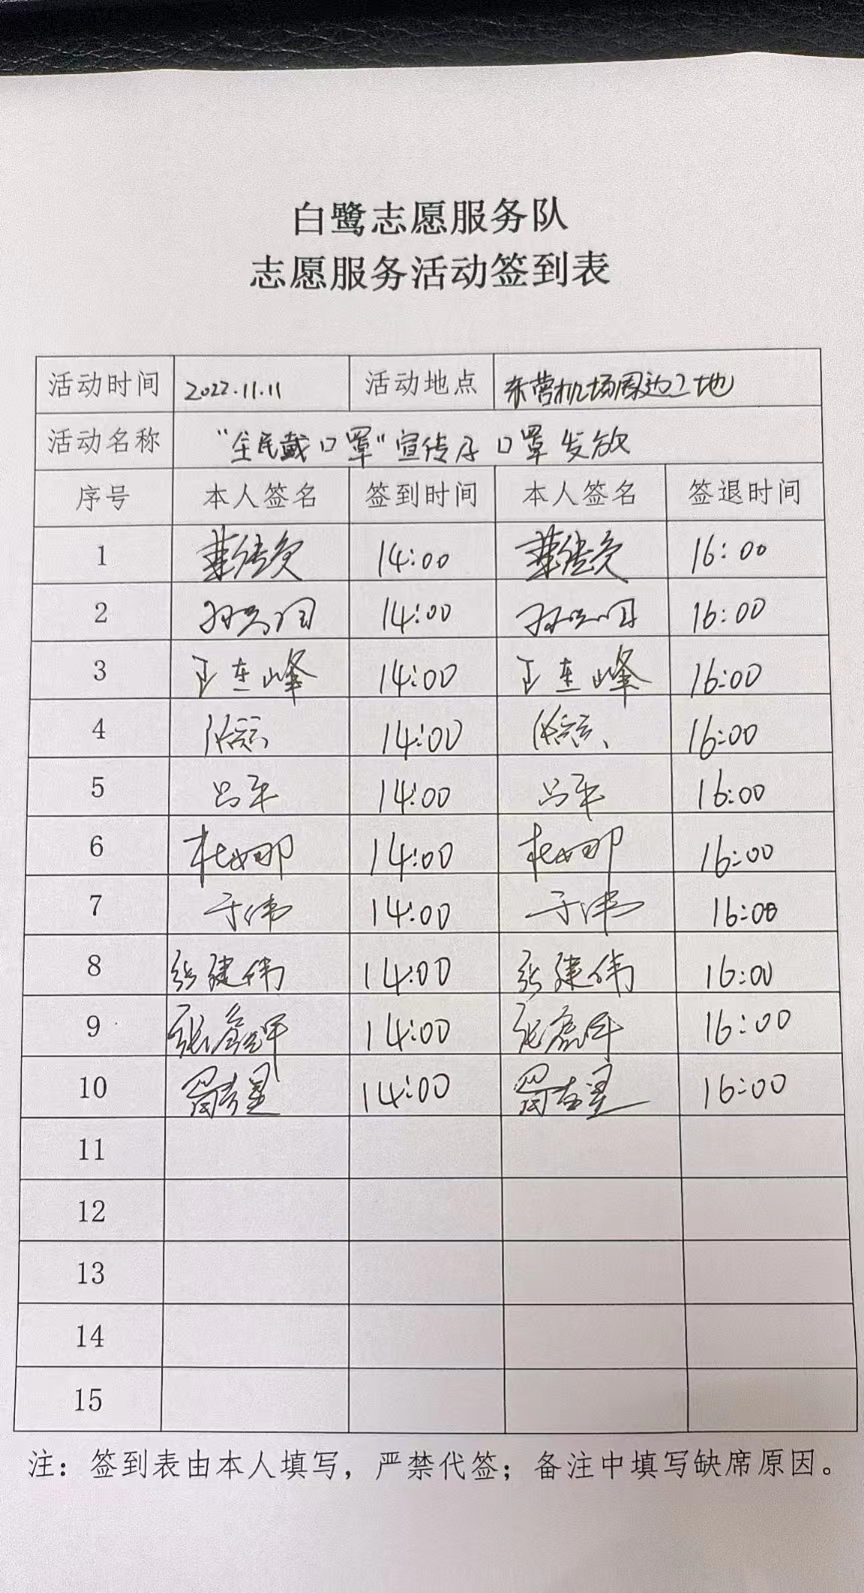 白鹭志愿服务队
志愿服务活动签到表
活动时间 2022.11.11 活动地点 东营机场周边工地
活动名称 "全民戴口罩"宣传及口罩发放
序号 本人签名 签到时间 本人签名 签退时间
1 14:00 16:00
2 14:00 16:00
3 王连峰 14:00 王连峰 16:00
4 14:00 16:00
5 吕平 14:00 吕平 16:00
6 杜娜 14:00 杜娜 16:00
7 于伟 14:00 于伟 16:00
8 张建伟 14:00 张建伟 16:00
9 14:00 16:00
10 14:00 16:00
11
12
13
14
15
注：签到表由本人填写，严禁代签；备注中填写缺席原因。